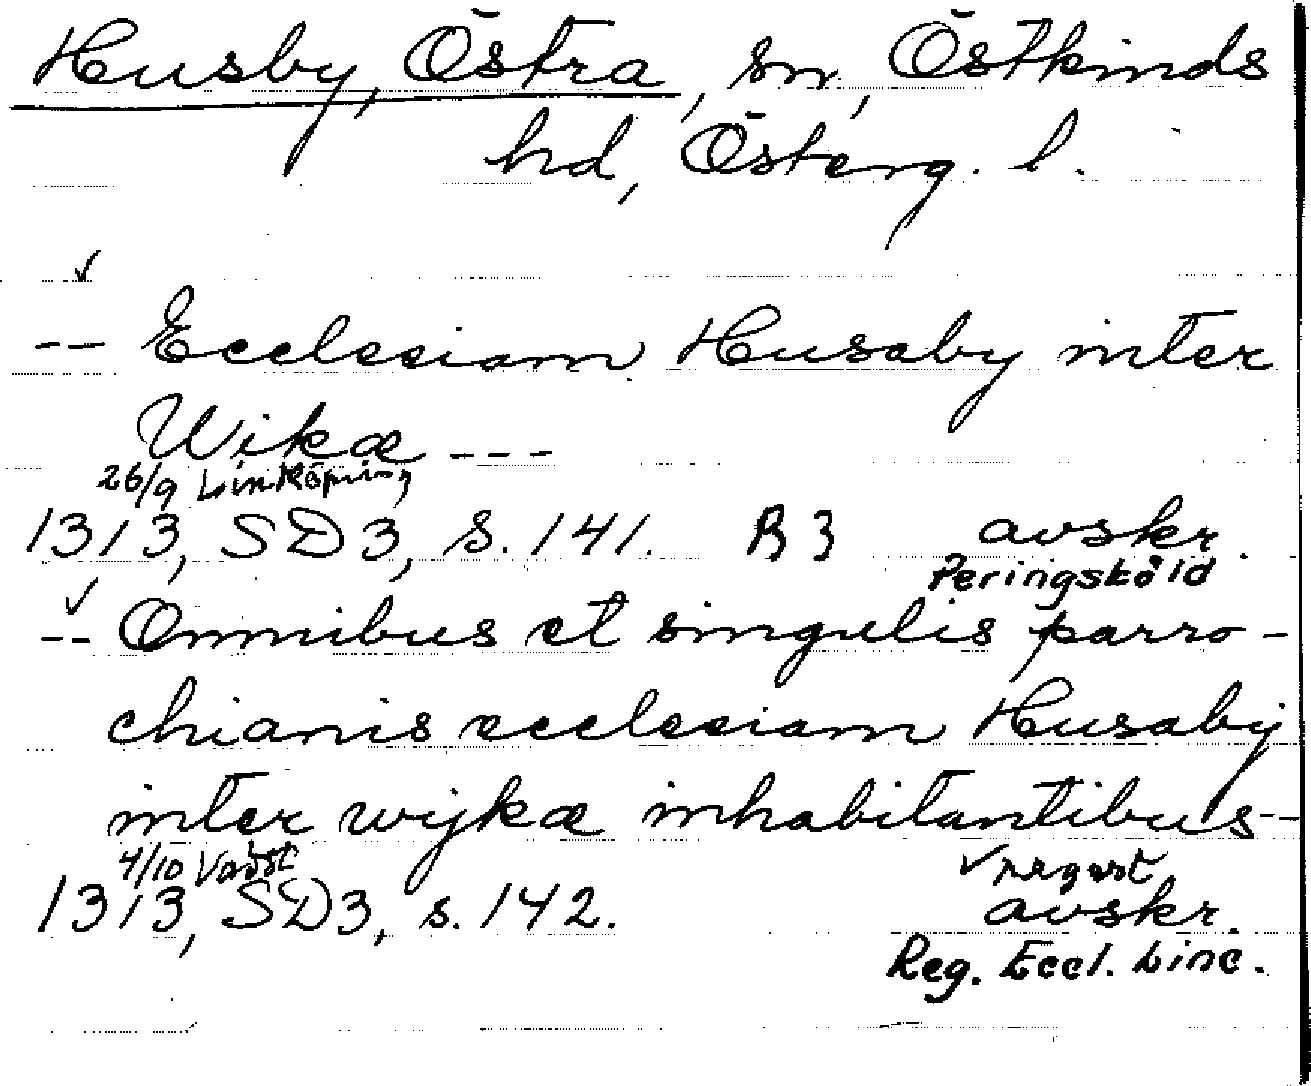 Husby, Östra, sn, Östkinds
hd, Österg. l.
-- Ecclesiam Husaby inter
Wikæ ---
26/9 Linköping
1313, SD3, s. 141. B 3 avskr.
Peringsköld
-- Omnibus et singulis parro-
chianis ecclesiam Husaby
inter wijkæ inhabitantibus--
4/10 Vadst
1313, SD3, s. 142. avskr.
Reg. Eccl. Linc.